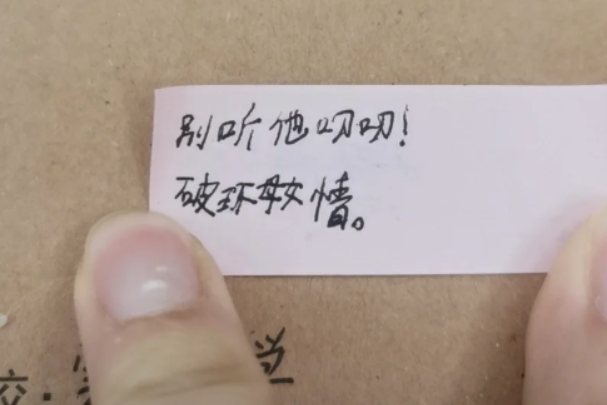 别听他叨叨!
破坏母女情。